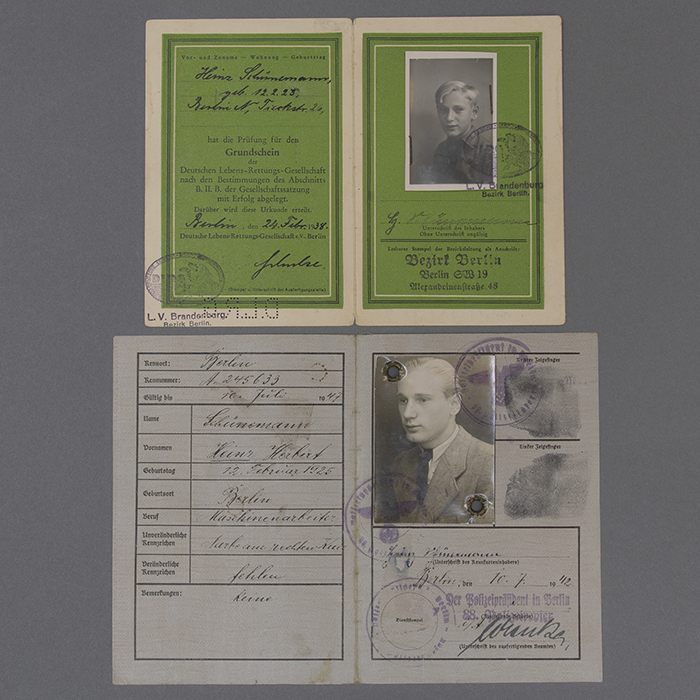 Vor- und Zuname — Wohnung — Geburtstag
Heinz Schünemann,
geb. 12.2.25,
Berlin N, Tieckstr. 26,
hat die Prüfung für den
Grundschein
der
Deutschen Lebens-Rettungs-Gesellschaft
nach den Bestimmungen des Abschnitts
B. II B. der Gesellschaftssatzung
mit Erfolg abgelegt.
Darüber wird diese Urkunde erteilt.
Berlin, den 24. Febr. 1938.
Deutsche Lebens-Rettungs-Gesellschaft e.V. Berlin
(Stempel u. Unterschrift der Ausfertigungsstelle)
L. V. Brandenburg,
Bezirk Berlin.
D.L.R.G
L. V. Brandenburg
Bezirk Berlin.
Hz. Schünemann
Unterschrift des Inhabers
Ohne Unterschrift ungültig
Lesbarer Stempel der Bezirksleitung als Anschrift:
Bezirk Berlin
Berlin SW 19
Alexandrinenstraße 48
Kennort: Berlin
Kennummer: A 245633
Gültig bis 10. Juli 1947
Name Schünemann
Vornamen Heinz Herbert
Geburtstag 12. Februar 1925
Geburtsort Berlin
Beruf Maschinenarbeiter
Unveränderliche Kennzeichen Narbe am rechten
Veränderliche Kennzeichen fehlen
Bemerkungen: keine
Rechter Zeigefinger
Linker Zeigefinger
Heinz Schünemann
(Unterschrift des Kennkarteninhabers)
Berlin, den 10. 7. 1942
Der Polizeipräsident in Berlin
Dienststempel
(Unterschrift des ausfertigenden Beamten)